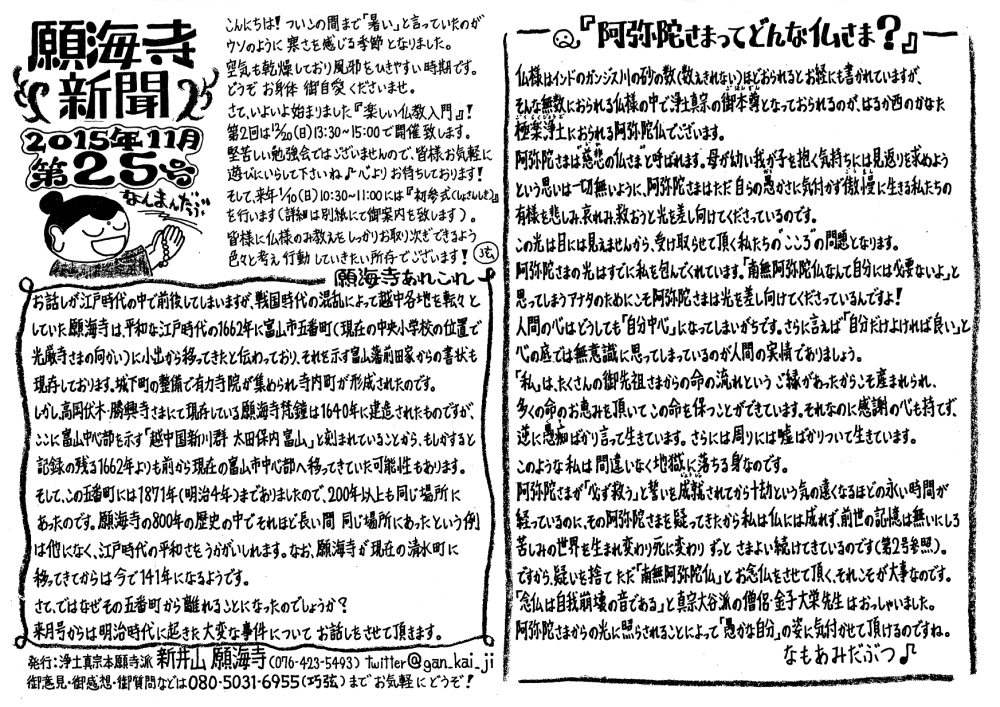 願海寺
新聞
2015年11月
第25号
なんまんだぶ
こんにちは！ついこの間まで「暑い」と言っていたのが
ウソのように寒さを感じる季節となりました。
空気も乾燥しており風邪をひきやすい時期です。
どうぞお身体御自愛くださいませ。
さて、いよいよ始まりました『楽しい仏教入門』！
第2回は12/20(日)13:30~15:00で開催致します。
堅苦しい勉強会ではございませんので、皆様お気軽に
遊びにいらして下さいね♪心よりお待ちしております！
そして、来年1/10(日)10:30~11:00には『初参式(しょさんしき)』
を行います(詳細は別紙にて御案内を致します)。
皆様に仏様のみ教えをしっかりお取り次ぎできるよう
色々と考え行動していきたい所存でございます！
願海寺あれこれ
お話しが江戸時代の中で前後してしまいますが、戦国時代の混乱によって越中各地を転々と
していた願海寺は、平和な江戸時代の1662年に富山市五番町(現在の中央小学校の位置で
光厳寺さまの向かい)に小出から移ってきたと伝わっており、それを示す富山藩前田家からの書状も
現存しております。城下町の整備で有力寺院が集められ寺内町が形成されたのです。
しかし高岡伏木・勝興寺さまにて現存している願海寺梵鐘は1640年に建造されたものですが、
ここに富山中心部を示す「越中国新川群 太田保内富山」と刻まれていることから、もしかすると
記録の残る1662年よりも前から現在の富山市中心部へ移ってきていた可能性もあります。
そして、この五番町には1871年(明治4年)までありましたので、200年以上も同じ場所に
あったのです。願海寺の800年の歴史の中でそれほど長い間同じ場所にあったという例
は他になく、江戸時代の平和さをうかがいしれます。なお、願海寺が現在の清水町に
移ってきてからは今で141年になるようです。
さて、ではなぜその五番町から離れることになったのでしょうか？
来月号からは明治時代に起きた大変な事件についてお話しをさせて頂きます。
発行:浄土真宗本願寺派 新井山 願海寺(076-423-5493) twitter@gan_kai_ji
御意見・御感想・御質問などは080-5031-6955(巧弦)までお気軽にどうぞ！
『阿弥陀さまってどんな仏さま？』
仏様はインドのガンジス川の砂の数(数えきれない)ほどおられるとお経にも書かれていますが、
そんな無数におられる仏様の中で浄土真宗の御本尊となっておられるのが、はるか西のかなた
極楽浄土におられる阿弥陀仏でございます。
阿弥陀さまは“慈悲の仏さま”と呼ばれます。母が幼い我が子を抱く気持ちには見返りを求めよう
という思いは一切無いように、阿弥陀さまはただ自らの愚かさに気付かず傲慢に生きる私たちの
有様を悲しみ哀れみ、救おうと光を差し向けてくださっているのです。
この光は目には見えませんから、受け取らせて頂く私たちの“こころ”の問題となります。
阿弥陀さまの光はすでに私を包んでくれています。「南無阿弥陀仏なんて自分には必要ないよ」と
思ってしまうアナタのためにこそ阿弥陀さまは光を差し向けてくださっているんですよ！
人間の心はどうしても「自分中心」になってしまいがちです。さらに言えば「自分だけよければ良い」と
心の底では無意識に思ってしまっているのが人間の実情でありましょう。
「私」は、たくさんの御先祖さまからの命の流れというご縁があったからこそ産まれられ、
多くの命のお恵みを頂いてこの命を保つことができています。それなのに感謝の心も持てず、
逆に愚痴ばかり言って生きています。さらには周りには嘘ばかりついて生きています。
このような私は間違いなく地獄に落ちる身なのです。
阿弥陀さまが「必ず救う」と誓いを成就されてから十劫という気の遠くなるほどの永い時間が
経っているのに、その阿弥陀さまを疑ってきたから私は仏には成れず、前世の記憶は無いにしろ
苦しみの世界を生まれ変わり死に変わりずっとさまよい続けてきているのです(第2号参照)。
ですから、疑いを捨てただ「南無阿弥陀仏」とお念仏をさせて頂く、それこそが大事なのです。
「念仏は自我崩壊の音である」と真宗大谷派の僧侶・金子大栄先生はおっしゃいました。
阿弥陀さまからの光に照らされることによって「愚かな自分」の姿に気付かせて頂けるのですね。
なもあみだぶつ♪